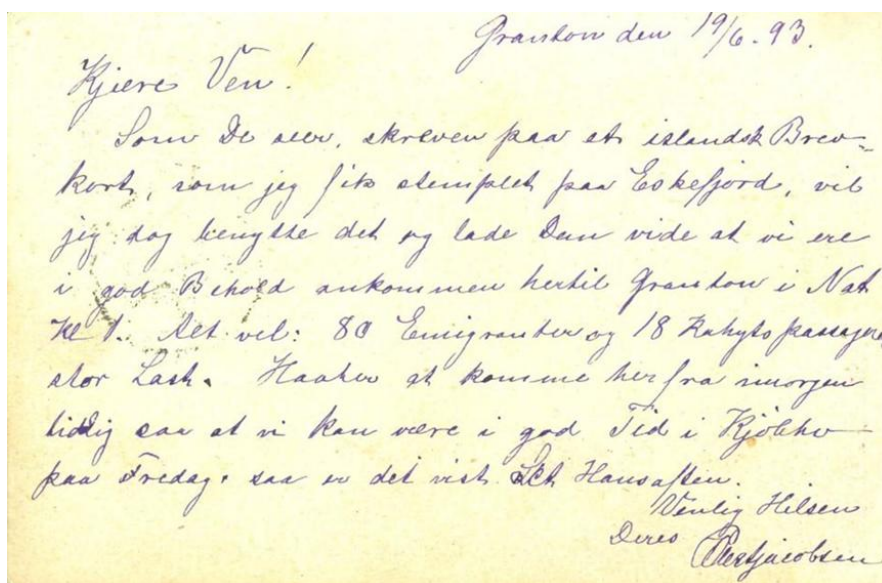 Granton den 19/6. 93.
Kjære Ven!
Som De seer, skreven paa et islandsk Brev-
kort, som jeg fik stemplet paa Eskefjord, vil
jeg dog benytte det og lade Dem vide at vi ere
i god Behold ankommen hertil Granton i Nat
Kl 1. Alt vel: 80 Emigranter og 18 Kahytspassagerer
stor Last. Haaber at komme herfra imorgen
tidlig saa at vi kan være i god Tid i Kjöbhv
paa Fredag. saa er det vist Sct Hansaften.
Venlig Hilsen
Deres